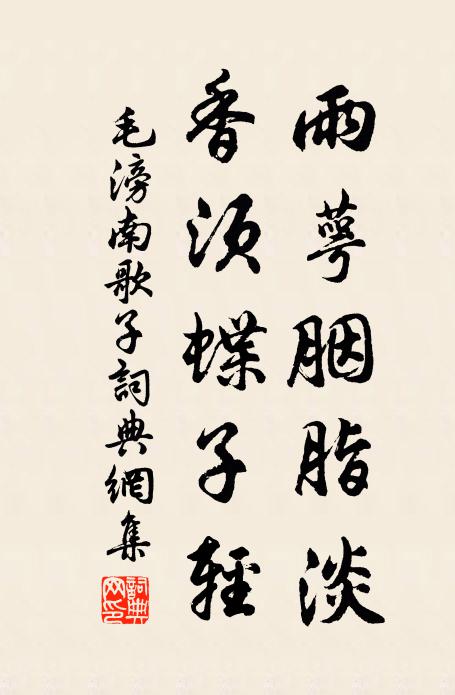 雨萼胭脂淡
香须蝶子輕
毛滂南歌子詞典網集
詞典网印